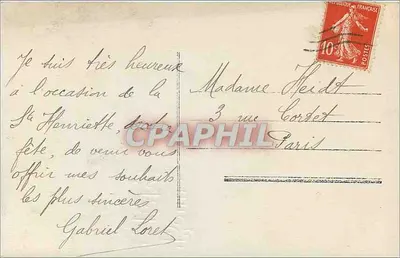 Je suis très heureux
à l'occasion de la
Ste Henriette, votre
fête, de venir vous
offrir mes souhaits
les plus sincères
Gabriel Loret
Madame Heidt
3 rue Cortet
Paris
10c
POSTES
CPAPHIL